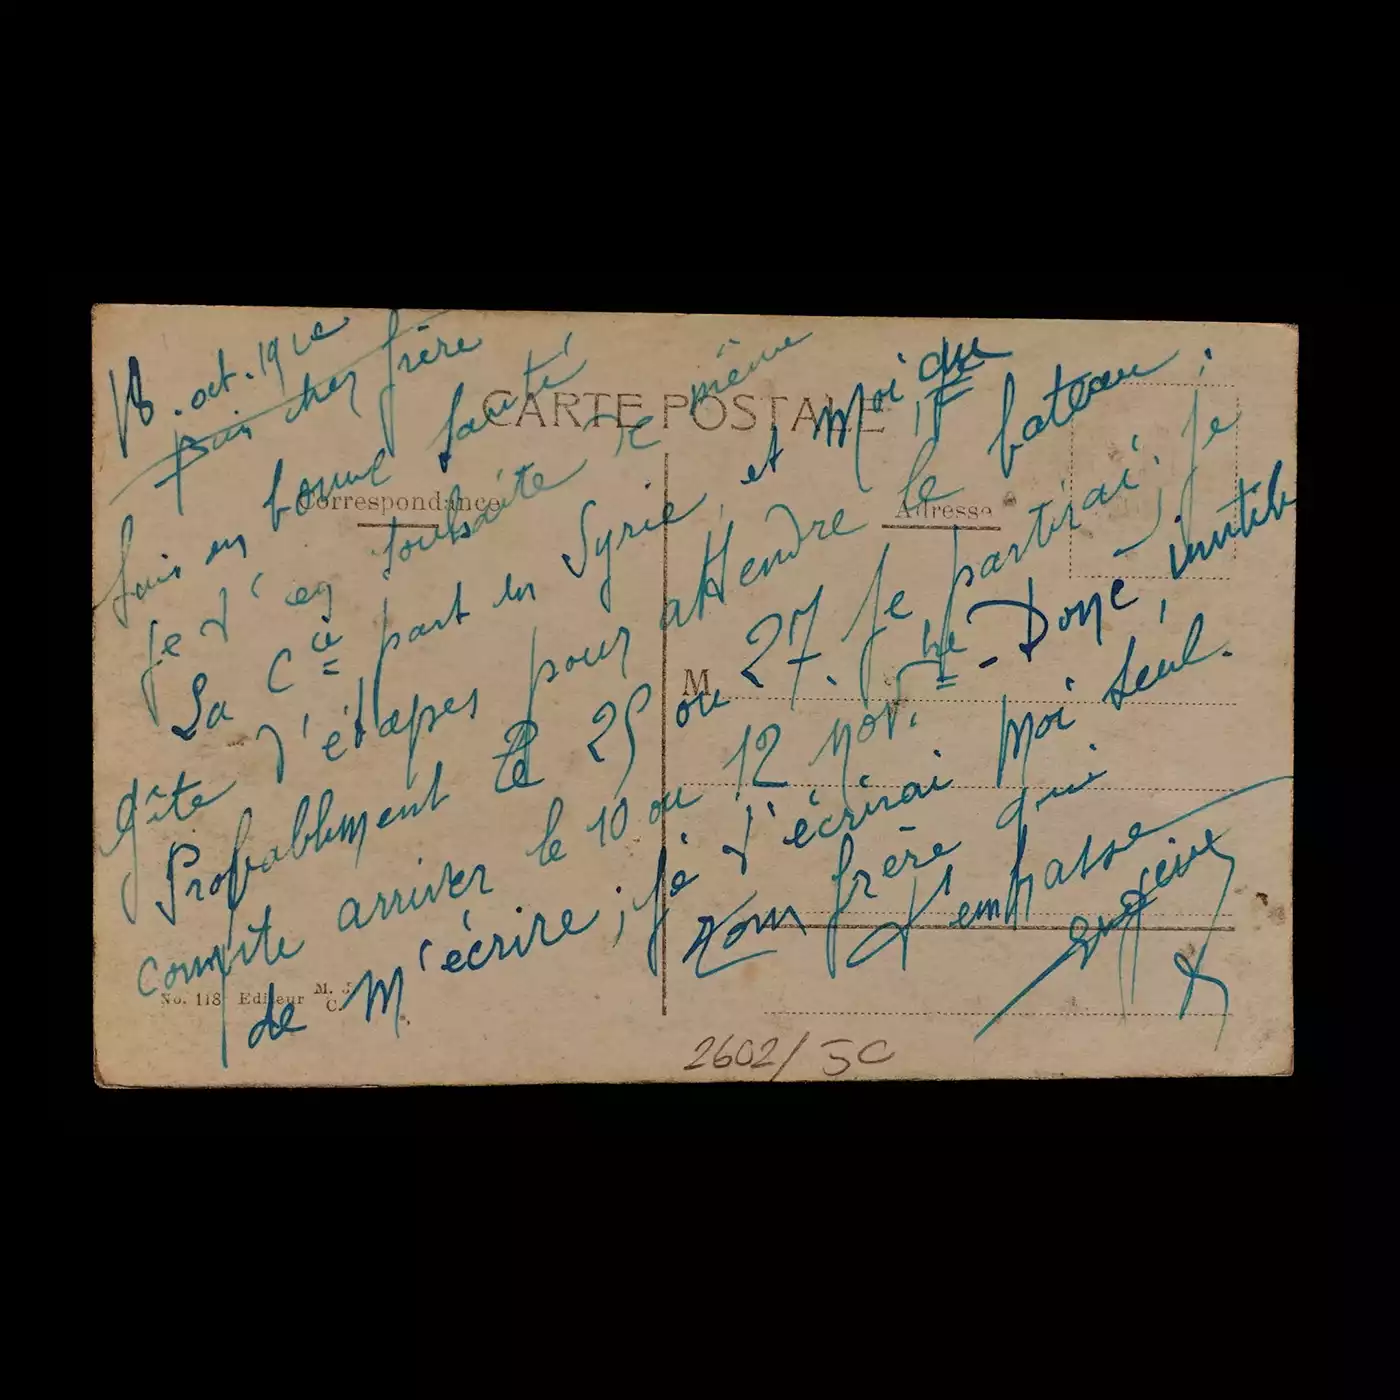 18. oct. 19
cher frère
suis en bonne santé
je t'en souhaite de même
La Cie part en Syrie, et Moi au
gîte d'étapes pour attendre le bateau ;
Probablement le 25 ou 27. Je partirai ; je
compte arriver le 10 ou 12 nov. - Donc, inutile
de M'écrire ; je t'écrirai Moi seul.
Ton frère qui
t'embrasse
CARTE POSTALE
Correspondance
Adresse
M
No. 118 Editeur M. J.
C.
2602/JC